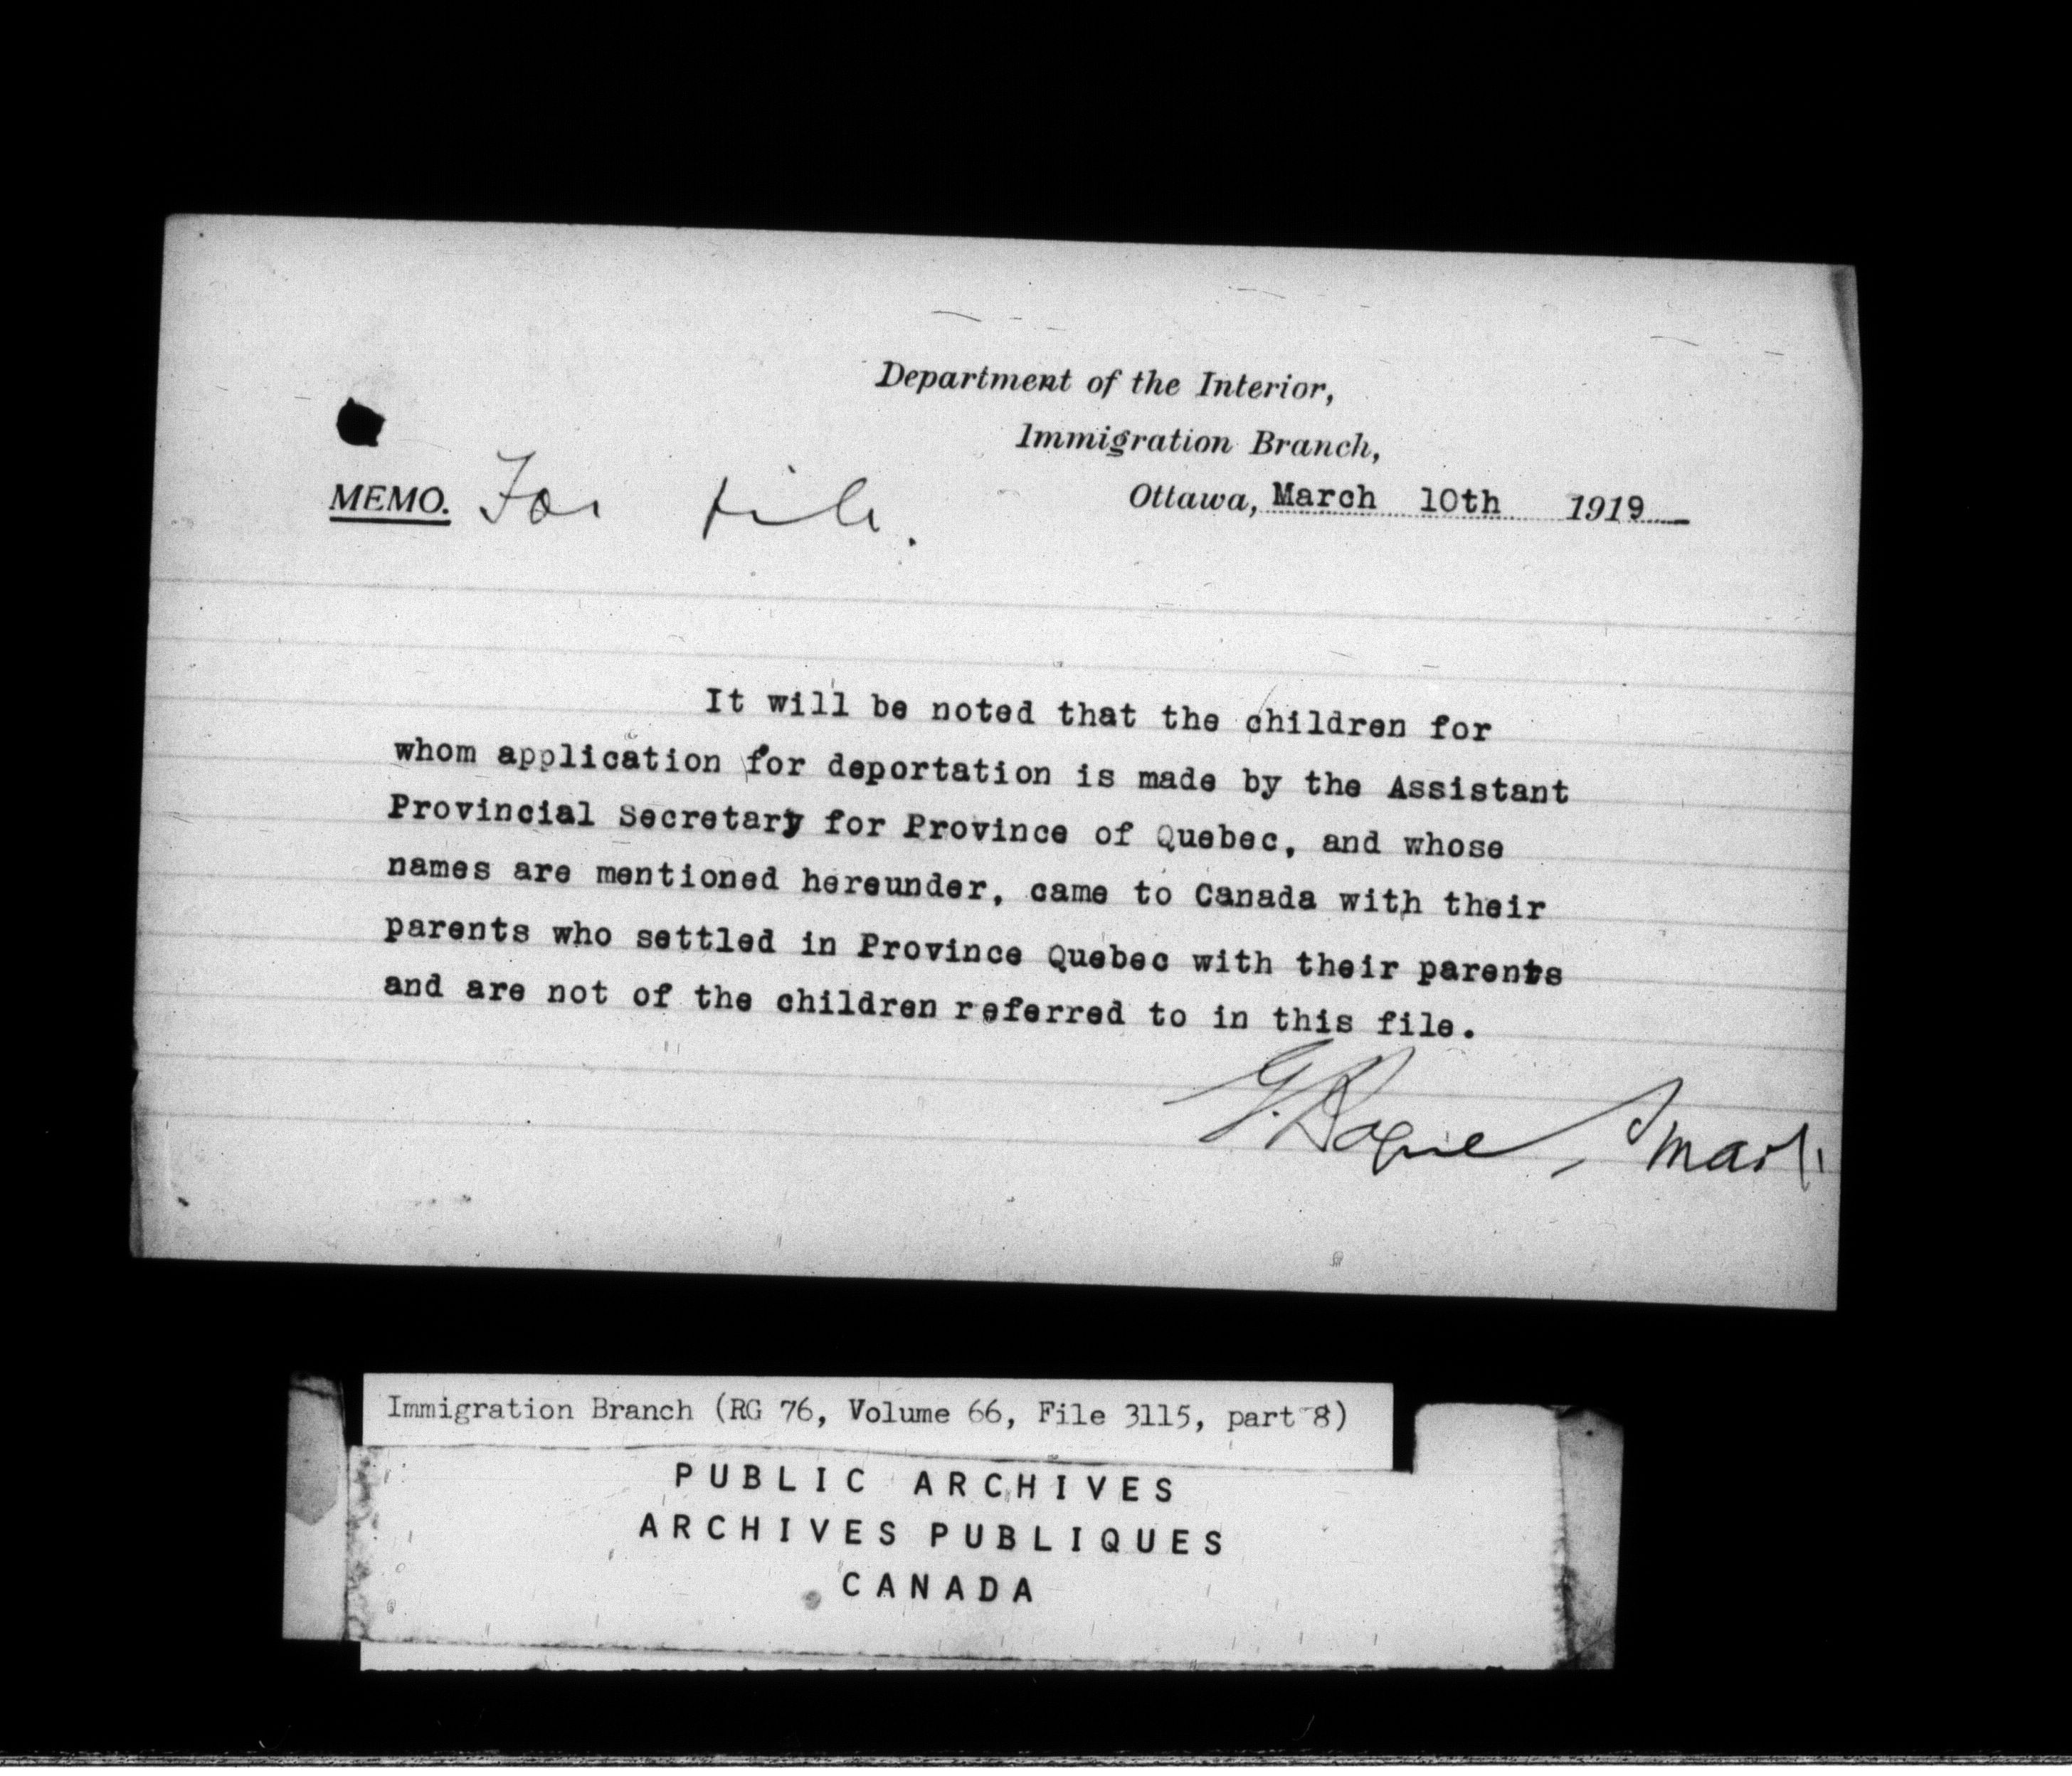 Department of the Interior,
Immigration Branch,
MEMO. For file.
Ottawa, March 10th 1919
It will be noted that the children for
whom application for deportation is made by the Assistant
Provincial Secretary for Province of Quebec, and whose
names are mentioned hereunder, came to Canada with their
parents who settled in Province Quebec with their parents
and are not of the children referred to in this file.
G. Bogue Smart
Immigration Branch (RG 76, Volume 66, File 3115, part 8)
PUBLIC ARCHIVES
ARCHIVES PUBLIQUES
CANADA